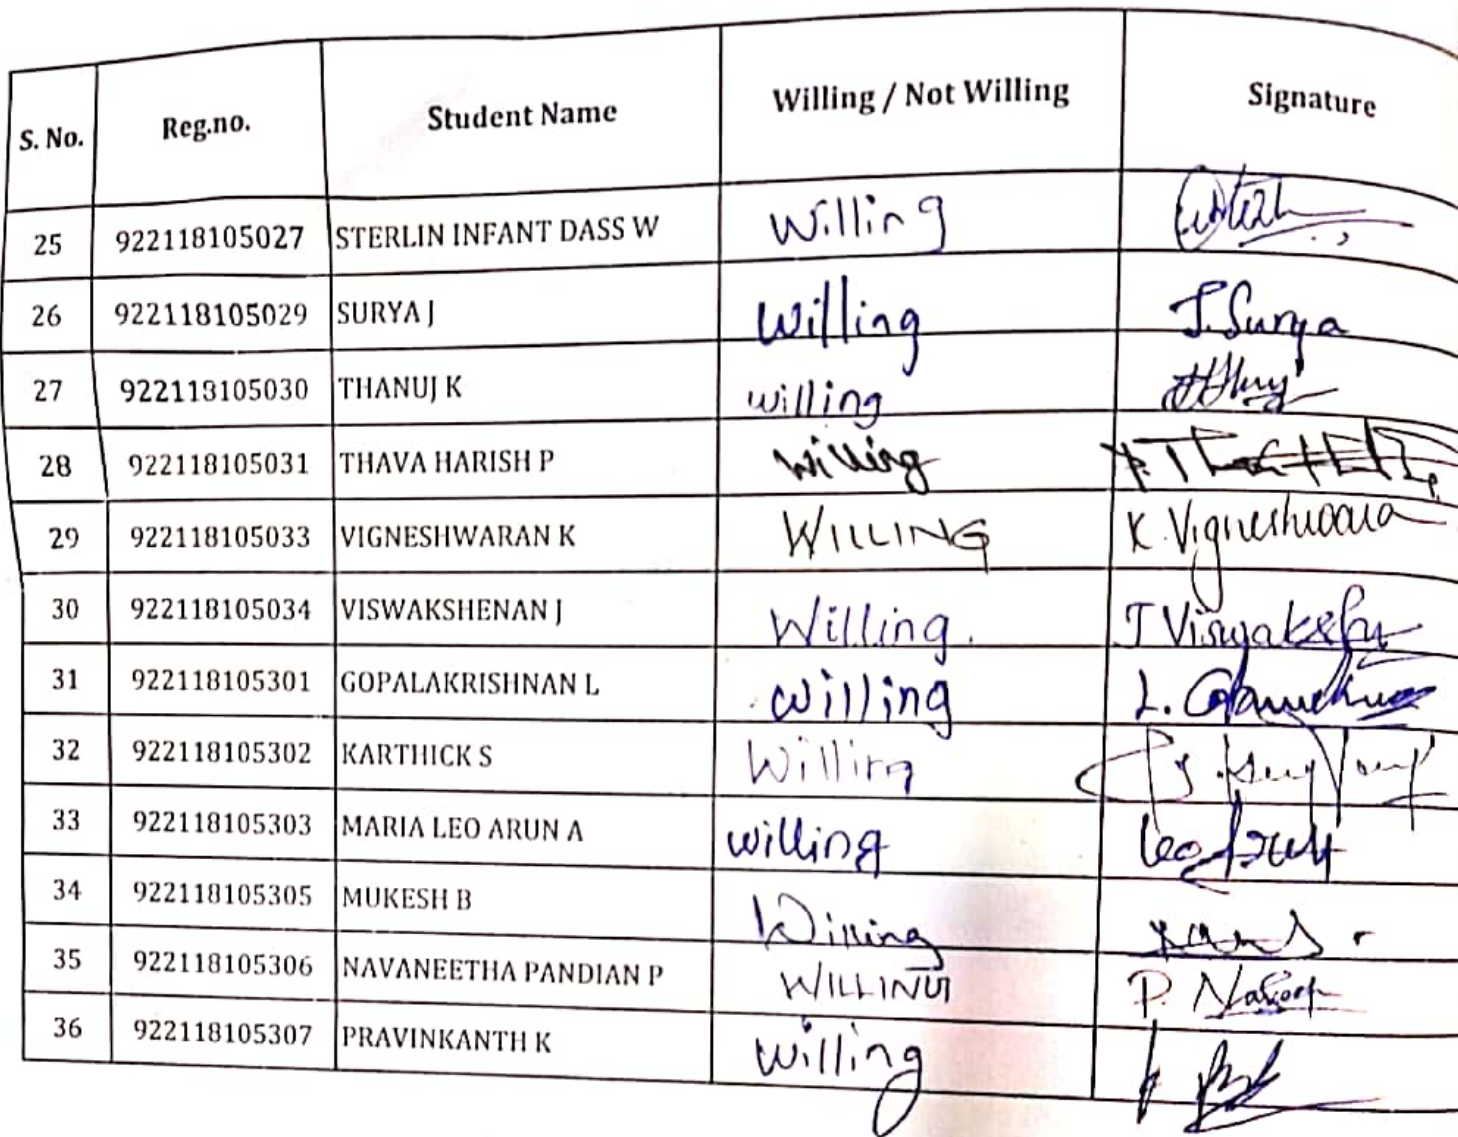 S. No. Reg.no. Student Name Willing / Not Willing Signature
25 922118105027 STERLIN INFANT DASS W Willing
26 922118105029 SURYA J Willing J.Surya
27 922118105030 THANUJ K willing
28 922118105031 THAVA HARISH P Willing
29 922118105033 VIGNESHWARAN K WILLING K. Vigneshwara
30 922118105034 VISWAKSHENAN J Willing.
31 922118105301 GOPALAKRISHNAN L willing
32 922118105302 KARTHICK S Willing
33 922118105303 MARIA LEO ARUN A willing
34 922118105305 MUKESH B Willing
35 922118105306 NAVANEETHA PANDIAN P WILLING
36 922118105307 PRAVINKANTH K willing